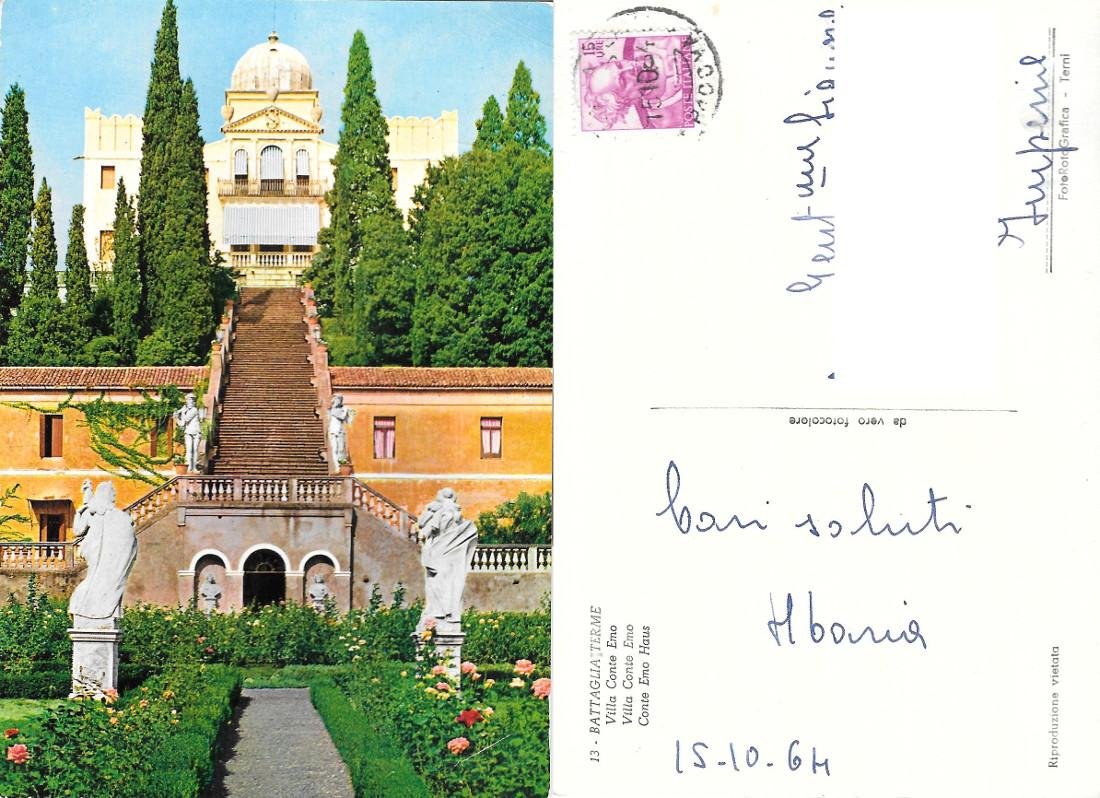 13 - BATTAGLIA TERME
Villa Conte Emo
Villa Conte Emo
Conte Emo Haus
Cari saluti
Albania
15-10-64
da vero fotocolore
15 LIRE
POSTE ITALIANE
Gent.
Imperiale
FotoRotoGrafica - Terni
Riproduzione vietata